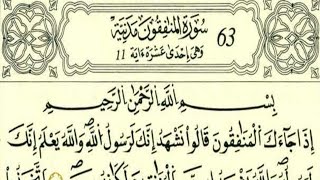 سُورَةُ الْمُنَٰفِقُونَ مَدَنِيَّةٌ 63
وَهِيَ إِحْدَىٰ عَشَرَةَ ءَايَةً 11
بِسْمِ اللَّهِ الرَّحْمَٰنِ الرَّحِيمِ
إِذَا جَآءَكَ الْمُنَٰفِقُونَ قَالُوا نَشْهَدُ إِنَّكَ لَرَسُولُ اللَّهِ وَاللَّهُ يَعْلَمُ إِنَّكَ